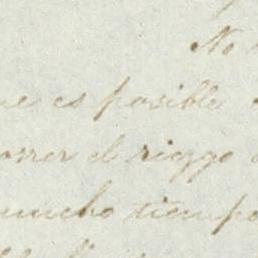 No
ue es posible
orrer el riezgo
mucho tiempo